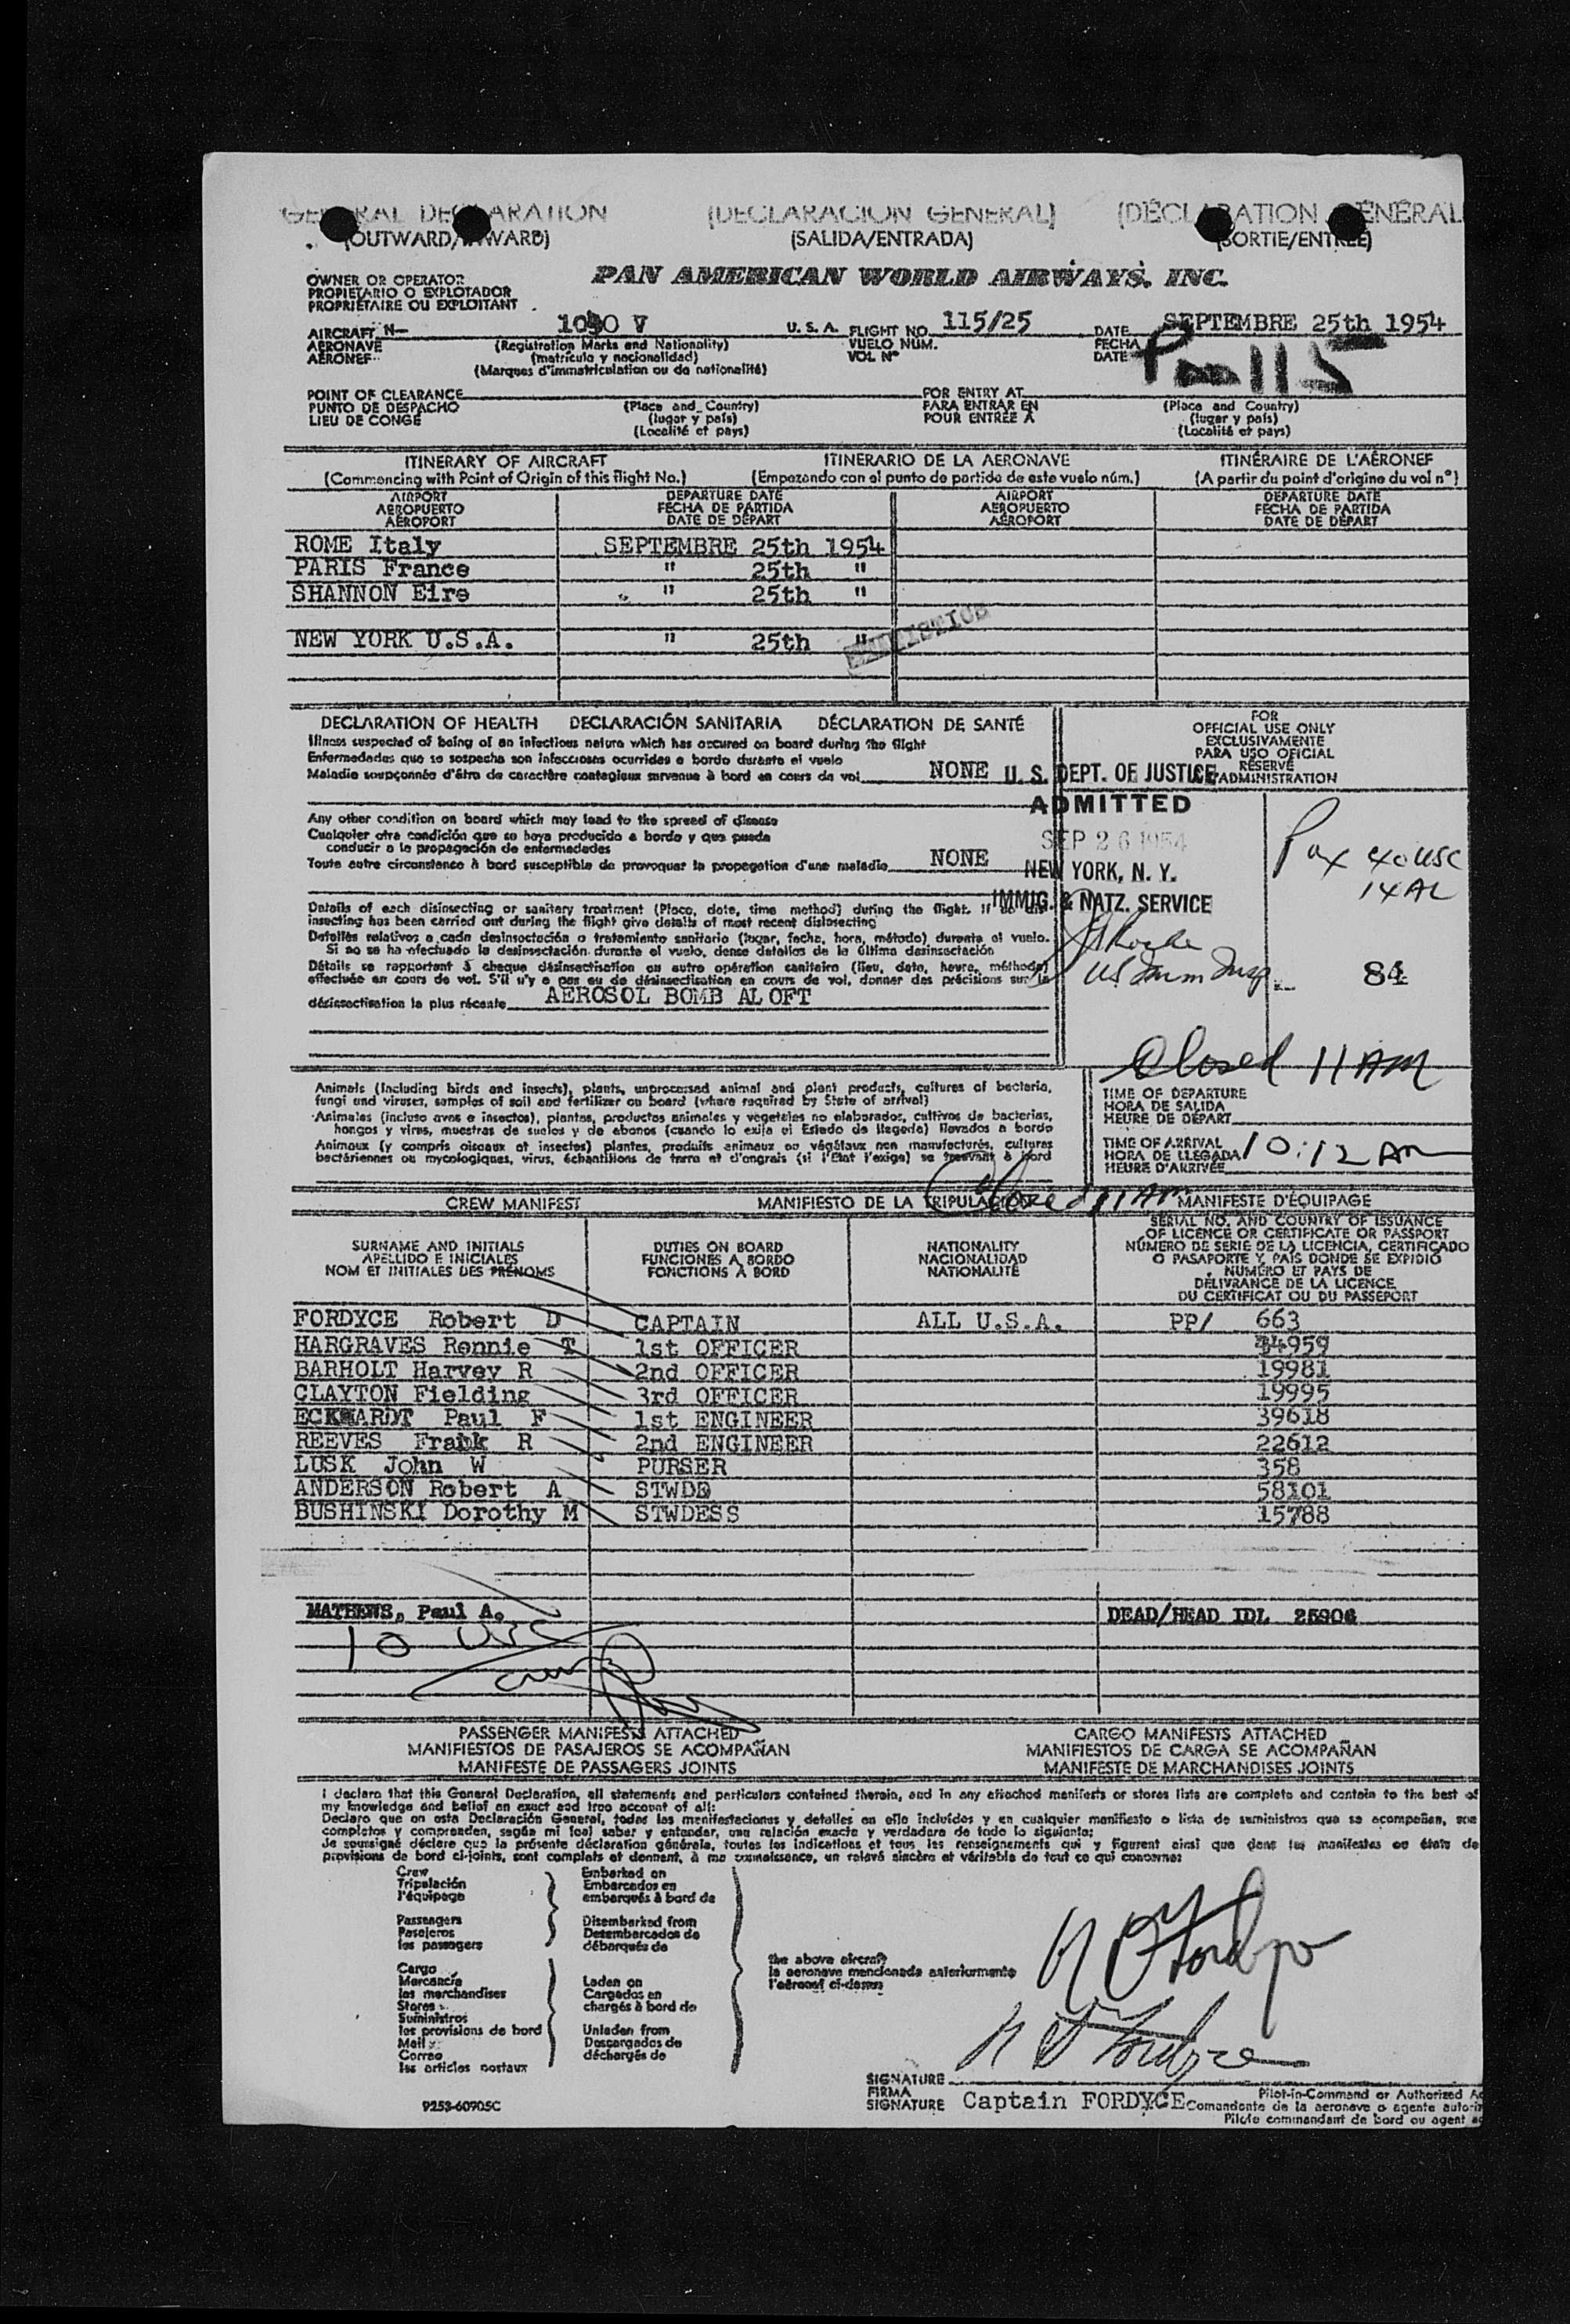 GENERAL DECLARATION (DECLARACIÓN GENERAL) (DÉCLARATION GÉNÉRAL
(OUTWARD/INWARD) (SALIDA/ENTRADA) (SORTIE/ENTRÉE)
OWNER OR OPERATOR
PROPIETARIO O EXPLOTADOR
PROPRIÉTAIRE OU EXPLOITANT
PAN AMERICAN WORLD AIRWAYS, INC.
AIRCRAFT N— V U. S. A. FLIGHT NO. 115/25 DATE SEPTEMBRE 25th 1954
AERONAVE (Registration Marks and Nationality) VUELO NUM. FECHA
AÉRONEF (matrícula y nacionalidad) VOL N° DATE Pan 115
(Marques d'immatriculation ou de nationalité)
POINT OF CLEARANCE FOR ENTRY AT
PUNTO DE DESPACHO (Place and Country) PARA ENTRAR EN (Place and Country)
LIEU DE CONGÉ (lugar y país) POUR ENTRÉE A (lugar y país)
(Localité et pays) (Localité et pays)
ITINERARY OF AIRCRAFT ITINERARIO DE LA AERONAVE ITINÉRAIRE DE L'AÉRONEF
(Commencing with Point of Origin of this flight No.) (Empezando con el punto de partida de este vuelo núm.) (A partir du point d'origine du vol n°)
AIRPORT DEPARTURE DATE AIRPORT DEPARTURE DATE
AEROPUERTO FECHA DE PARTIDA AEROPUERTO FECHA DE PARTIDA
AÉROPORT DATE DE DÉPART AÉROPORT DATE DE DÉPART
ROME Italy SEPTEMBRE 25th 1954
PARIS France " 25th "
SHANNON Eire " 25th "
NEW YORK U.S.A. " 25th "
DECLARATION OF HEALTH DECLARACIÓN SANITARIA DÉCLARATION DE SANTÉ
Illness suspected of being of an infectious nature which has occured on board during the flight
Enfermedades que se sospecha son infecciosas ocurridas a bordo durante el vuelo
Maladie soupçonnée d'être de caractère contagieux survenue à bord en cours de vol NONE
FOR
OFFICIAL USE ONLY
EXCLUSIVAMENTE
PARA USO OFICIAL
RESERVÉ
ADMINISTRATION
U. S. DEPT. OF JUSTICE
ADMITTED
SEP 26 1954
NEW YORK, N. Y.
IMMIG. & NATZ. SERVICE
Pax
84
Any other condition on board which may lead to the spread of disease
Cualquier otra condición que se haya producido a bordo y que pueda
conducir a la propagación de enfermedades
Toute autre circonstance à bord susceptible de provoquer la propagation d'une maladie NONE
Details of each disinsecting or sanitary treatment (Place, date, time method) during the flight. If no dis-
insecting has been carried out during the flight give details of most recent disinsecting
Detalles relativos a cada desinsectación o tratamiento sanitario (lugar, fecha, hora, método) durante el vuelo.
Si no se ha efectuado la desinsectación durante el vuelo, dense detalles de la última desinsectación
Détails se rapportant à chaque désinsectisation ou autre opération sanitaire (lieu, date, heure, méthode)
effectuée en cours de vol. S'il n'y a pas eu de désinsectisation en cours de vol, donner des précisions sur la
désinsectisation la plus récente AEROSOL BOMB ALOFT
Closed 11 AM
Animals (including birds and insects), plants, unprocessed animal and plant products, cultures of bacteria,
fungi and viruses, samples of soil and fertilizer on board (where required by State of arrival)
Animales (incluso aves e insectos), plantas, productos animales y vegetales no elaborados, cultivos de bacterias,
hongos y virus, muestras de suelos y de abonos (cuando lo exija el Estado de llegada) llevados a bordo
Animaux (y compris oiseaux et insectes) plantes, produits animaux ou végétaux non manufacturés, cultures
bactériennes ou mycologiques, virus, échantillons de terre et d'engrais (si l'Etat l'exige) se trouvant à bord
TIME OF DEPARTURE
HORA DE SALIDA
HEURE DE DÉPART
TIME OF ARRIVAL
HORA DE LLEGADA 10:12 AM
HEURE D'ARRIVÉE
Closed 11 AM
CREW MANIFEST MANIFIESTO DE LA TRIPULACION MANIFESTE D'ÉQUIPAGE
SURNAME AND INITIALS DUTIES ON BOARD NATIONALITY
APELLIDO E INICIALES FUNCIONES A BORDO NACIONALIDAD
NOM ET INITIALES DES PRÉNOMS FONCTIONS À BORD NATIONALITÉ
SERIAL NO. AND COUNTRY OF ISSUANCE
OF LICENCE OR CERTIFICATE OR PASSPORT
NÚMERO DE SERIE DE LA LICENCIA, CERTIFICADO
O PASAPORTE Y PAÍS DONDE SE EXPIDIÓ
NUMÉRO ET PAYS DE
DÉLIVRANCE DE LA LICENCE
DU CERTIFICAT OU DU PASSEPORT
FORDYCE Robert D CAPTAIN ALL U.S.A. PP/ 663
HARGRAVES Rennie T 1st OFFICER 34959
BARHOLT Harvey R 2nd OFFICER 19981
CLAYTON Fielding 3rd OFFICER 19995
ECKHARDT Paul F 1st ENGINEER 39618
REEVES Frank R 2nd ENGINEER 22612
LUSK John W PURSER 358
ANDERSON Robert A STWDD 58101
BUSHINSKI Dorothy M STWDESS 15788
MATHEWS, Paul A. DEAD/HEAD IDL 25906
10 USC
crew
PASSENGER MANIFESTS ATTACHED CARGO MANIFESTS ATTACHED
MANIFIESTOS DE PASAJEROS SE ACOMPAÑAN MANIFIESTOS DE CARGA SE ACOMPAÑAN
MANIFESTE DE PASSAGERS JOINTS MANIFESTE DE MARCHANDISES JOINTS
I declare that this General Declaration, all statements and particulars contained therein, and in any attached manifests or stores lists are complete and contain to the best of
my knowledge and belief an exact and true account of all:
Declaro que en esta Declaración General, todas las manifestaciones y detalles en ella incluídos y en cualquier manifiesto o lista de suministros que se acompañan, son
completos y comprenden, según mi leal saber y entender, una relación exacta y verdadera de todo lo siguiente:
Je soussigné déclare que la présente déclaration générale, toutes les indications et tous les renseignements qui y figurent ainsi que dans les manifestes ou états de
provisions de bord ci-joints, sont complets et donnent, à ma connaissance, un relevé sincère et véritable de tout ce qui concerne:
Crew Embarked on
Tripulación Embarcados en
l'équipage embarqués à bord de
Passengers Disembarked from
Pasajeros Desembarcados de
les passagers débarqués de
the above aircraft
la aeronave mencionada anteriormente
l'aéronef ci-dessus
Cargo
Mercancía Laden on
les marchandises Cargados en
Stores chargés à bord de
Suministros
les provisions de bord Unladen from
Mail Descargados de
Correo déchargés de
les articles postaux
R D Fordyce
R D Fordyce
SIGNATURE
FIRMA
SIGNATURE Captain FORDYCE
Pilot-in-Command or Authorized A
Comandante de la aeronave o agente autori
Pilote commandant de bord ou agent a
9253-60905C